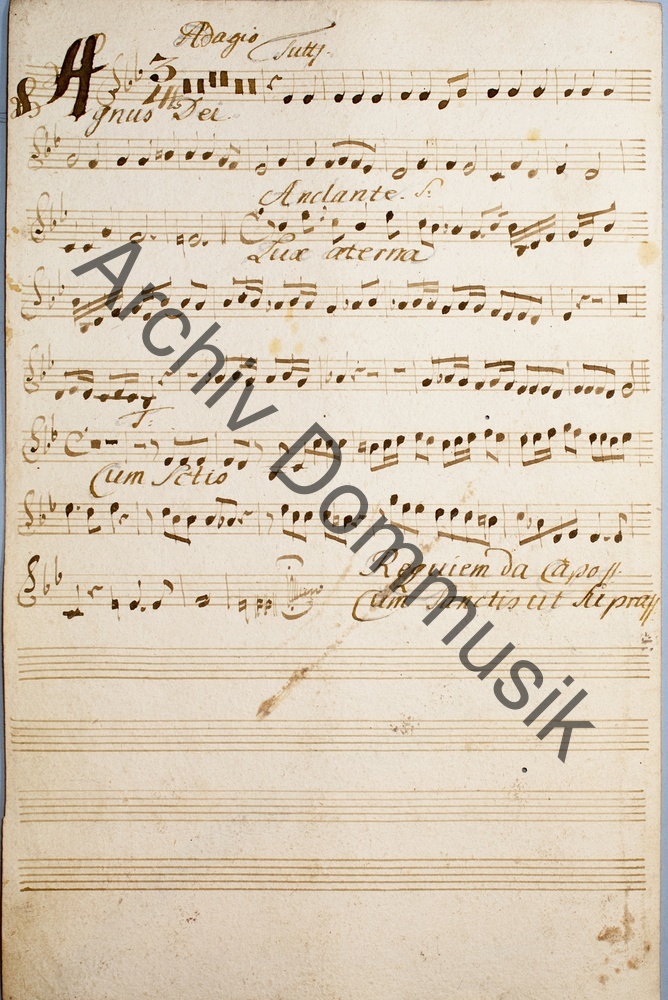 Adagio
Tutti.
Agnus Dei
Andante. S:
Lux æterna
T:
Cum Sctis
Requiem da Capo //.
Cum Sanctis ut supra //
Archiv Dommusik